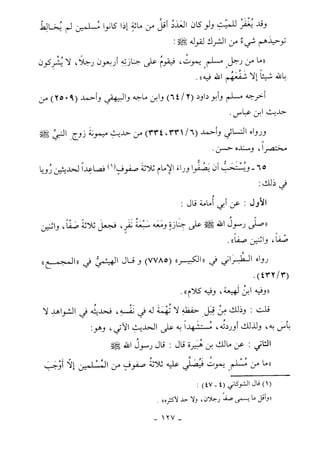 وقد يُغْفَرُ للميِّتِ ولو كان العَدَدُ أقلَّ من مائةٍ إذا كانوا مُسلمينَ لم يُخالِطْ
توحيدَهم شيءٌ من الشركِ لقوله ﷺ :
«ما من رجلٍ مسلمٍ يموتُ، فيقومُ على جنازتِه أربعون رجلاً، لا يُشْرِكُون
بالله شيئاً إلاَّ شَفَّعَهُمُ اللهُ فيه».
أخرجه مسلم وأبو داود (٢/ ٦٤) وابن ماجه والبيهقي وأحمد (٢٥٠٩) من
حديث ابن عباس.
ورواه النسائي وأحمد (٦/ ٣٣١، ٣٣٤) من حديث ميمونةَ زوج النبيِّ ﷺ
مختصراً، وسنده حسن.
٦٥- ويُسْتَحَبُّ أن يَصُفُّوا وراءَ الإمامِ ثلاثةَ صفوفٍ(١) فصاعداً لحديثين رُويا
في ذلك:
الأول : عن أبي أُمامة قال :
«صلَّى رسولُ الله ﷺ على جِنَازةٍ ومَعَه سَبْعَةُ نَفَرٍ، فجعلَ ثلاثةً صَفّاً، واثنينِ
صَفّاً، واثنين صفاً».
رواه الطبراني في «الكبير» (٧٧٨٥) و قال الهيثميُّ في «المجمع»
(٤٣٢/٣).
«وفيه ابنُ لهيعةَ، وفيه كلام».
قلت : وذلك مِنْ قِبَلِ حفظِه لا تُهْمَةَ له في نَفْسِه، فحديثُه في الشواهدِ لا
بأسَ به، ولذلك أوردتُه، مُستشهداً به على الحديثِ الآتي، وهو:
الثاني : عن مالك بن هُبيرة قال : قال رسولُ الله ﷺ
«ما من مُسْلمٍ يموتُ فيُصَلِّي عليه ثلاثةُ صفوفٍ من المُسْلمين إلاَّ أوْجَبَ
(١) قال الشوكاني (٤- ٤٧) :
«وأقل ما يسمى صفاً رجلان، ولا حد لأكثره» .
_ ١٢٧ _